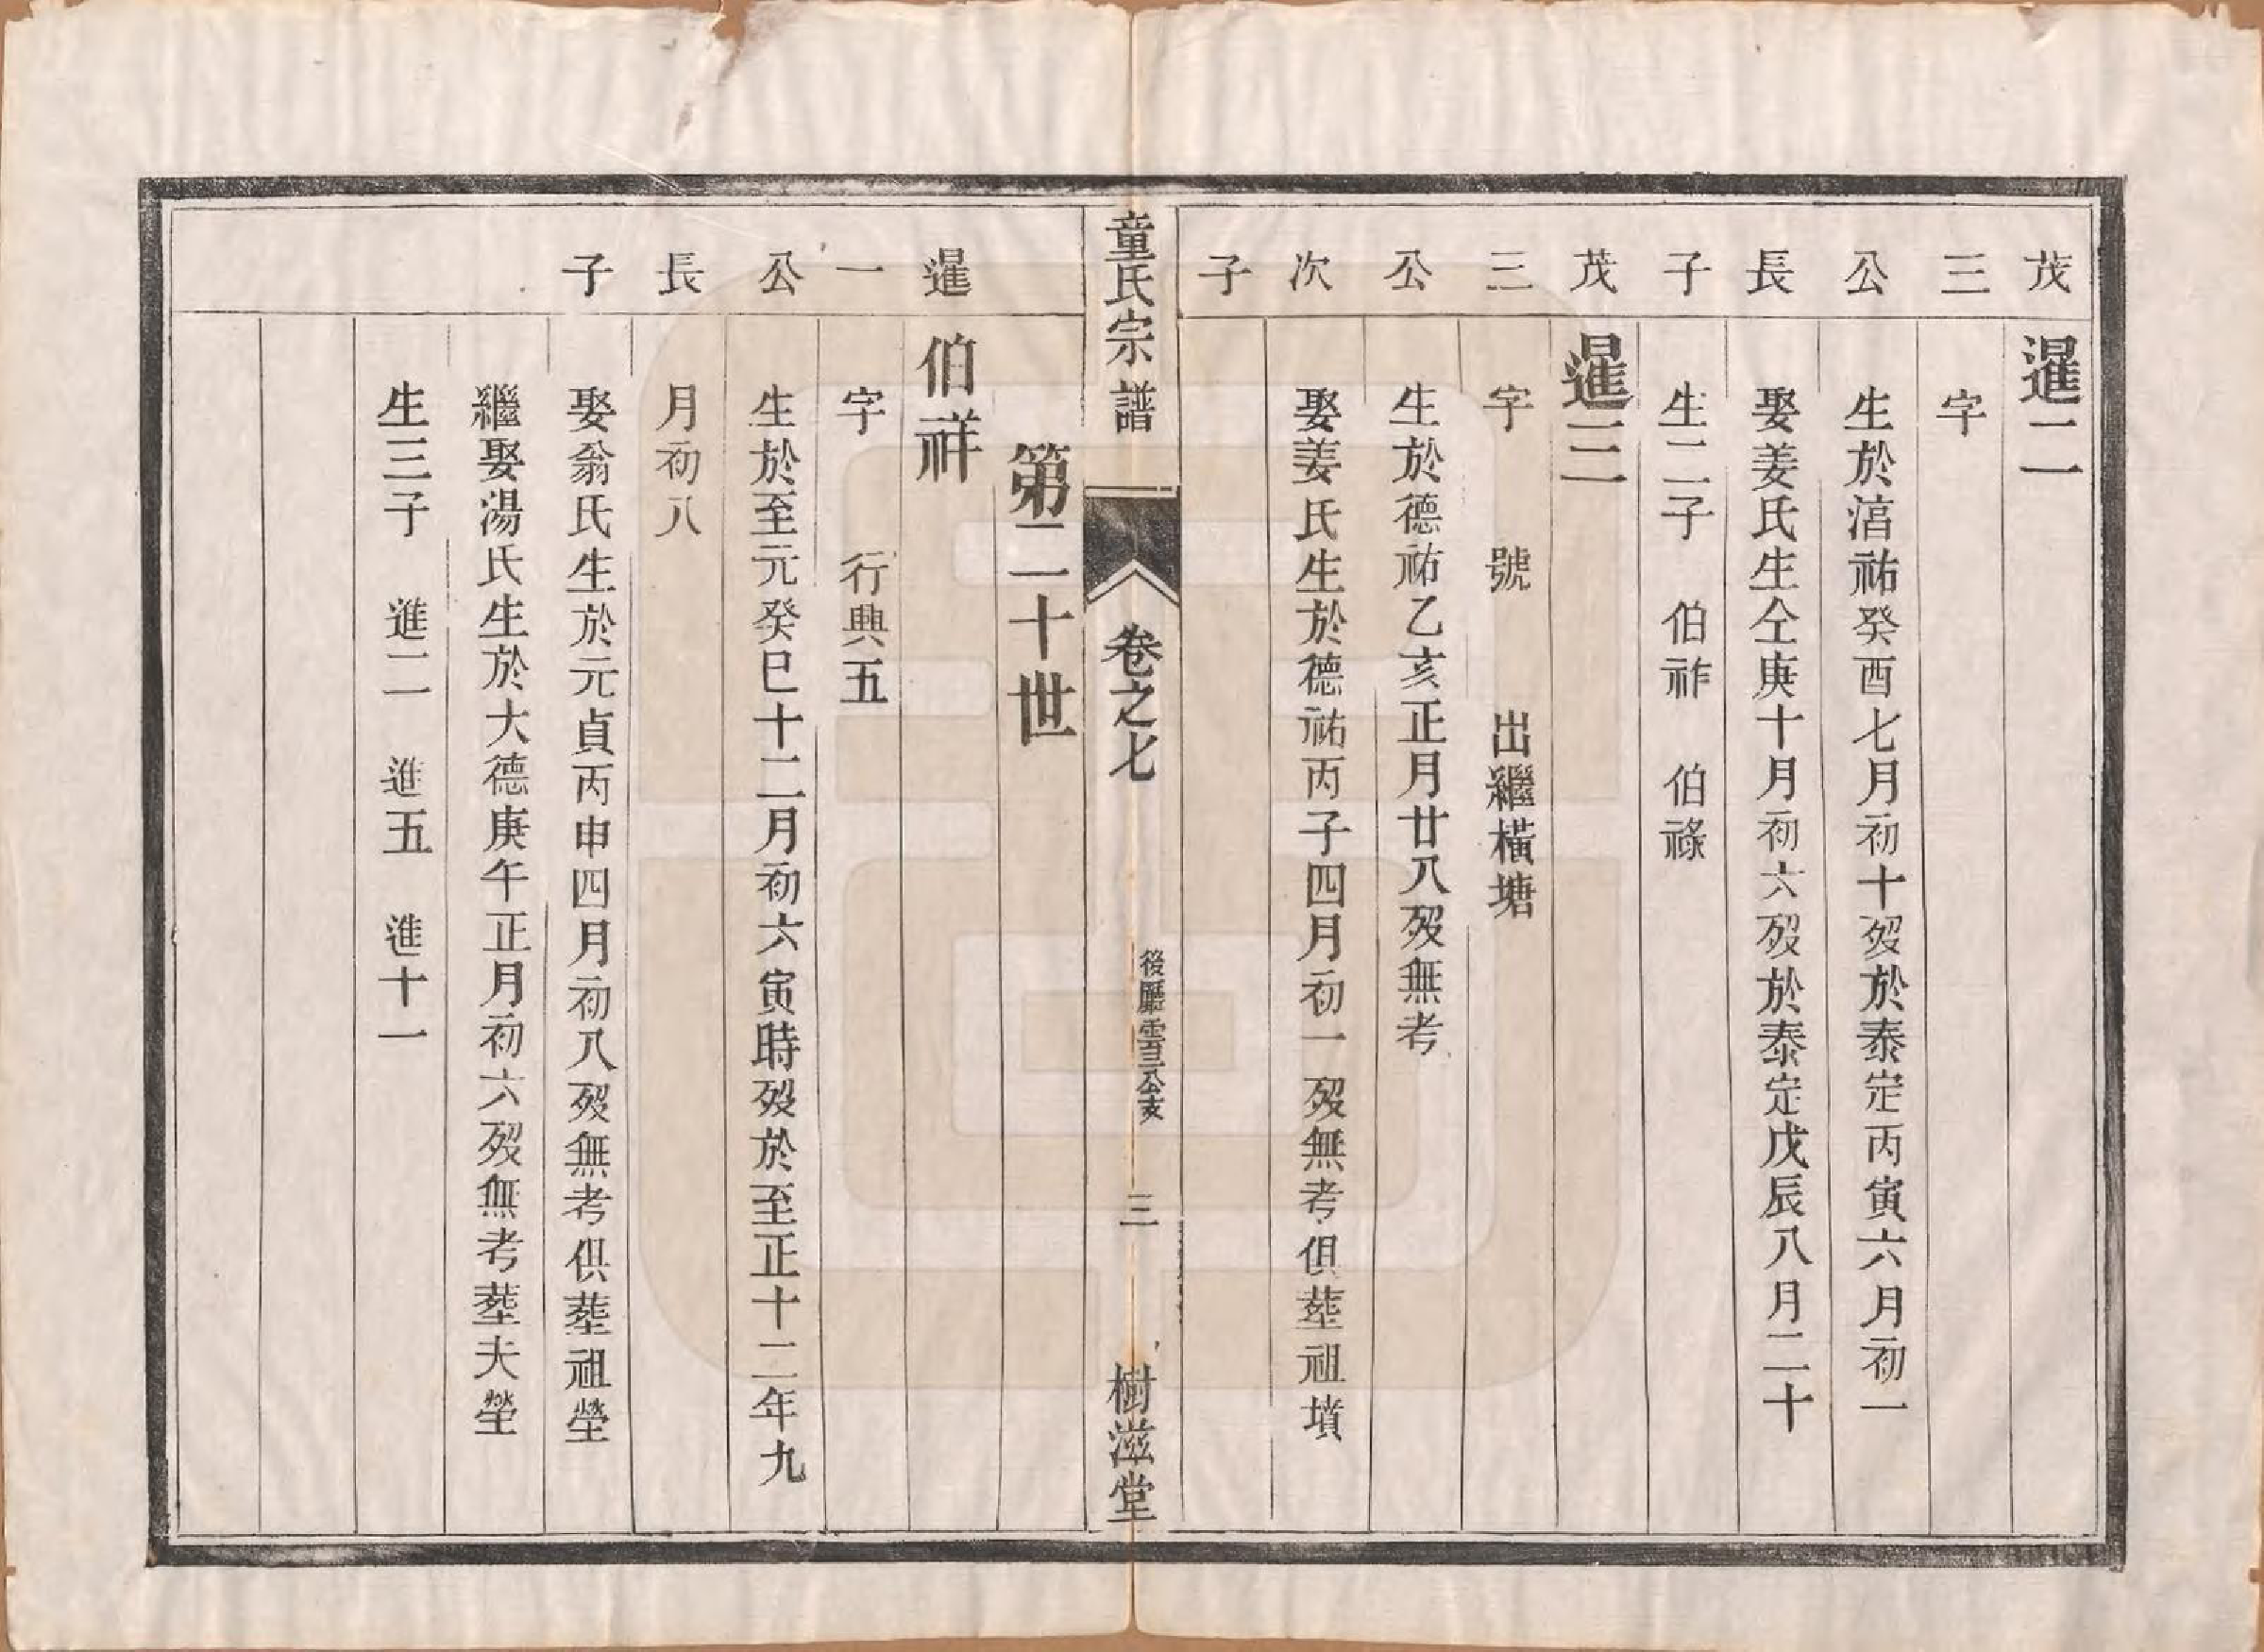 茂三公長子
暹二
字
生於湻祐癸酉七月初十殁於泰定丙寅六月初一
娶姜氏生仝庚十月初六殁於泰定戊辰八月二十
生二子 伯祚 伯祿
茂三公次子
暹三
字 號 出繼橫塘
生於德祐乙亥正月廿八殁無考
娶姜氏生於德祐丙子四月初一殁無考俱塟祖墳
童氏宗譜 卷之七 後廳雲三公支 三 樹滋堂
第二十世
暹一公長子
伯祥
字 行興五
生於至元癸巳十二月初六寅時殁於至正十二年九
月初八
娶翁氏生於元貞丙申四月初八殁無考俱塟祖塋
繼娶湯氏生於大德庚午正月初六殁無考塟夫塋
生三子 進二 進五 進十一